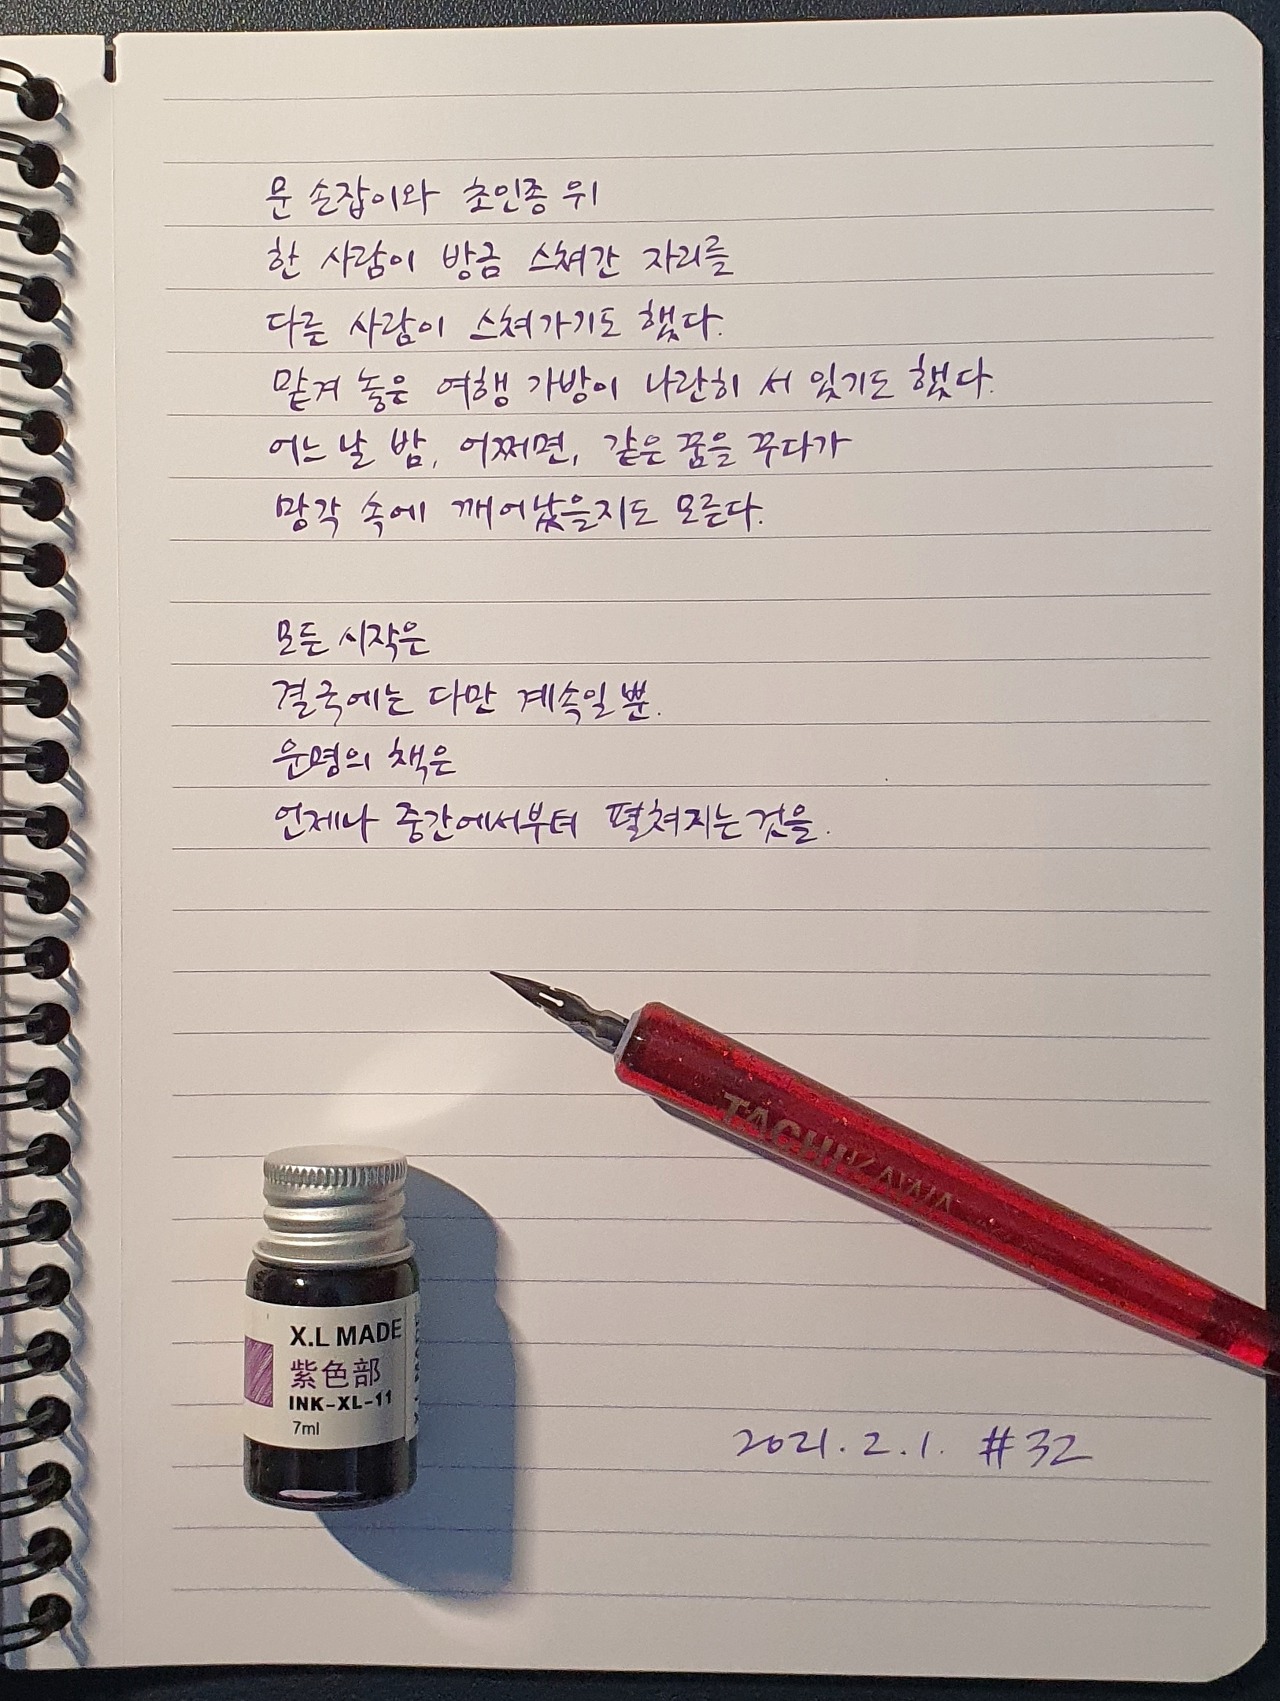 문 손잡이와 초인종 위
한 사람이 방금 스쳐간 자리를
다른 사람이 스쳐가기도 했다.
맡겨 놓은 여행 가방이 나란히 서 있기도 했다.
어느 날 밤, 어쩌면, 같은 꿈을 꾸다가
망각 속에 깨어났을지도 모른다.
모든 시작은
결국에는 다만 계속일 뿐.
운명의 책은
언제나 중간에서부터 펼쳐지는 것을.
TACHIKAWA
X.L MADE
紫色部
INK-XL-11
7ml
2021.2.1. #32